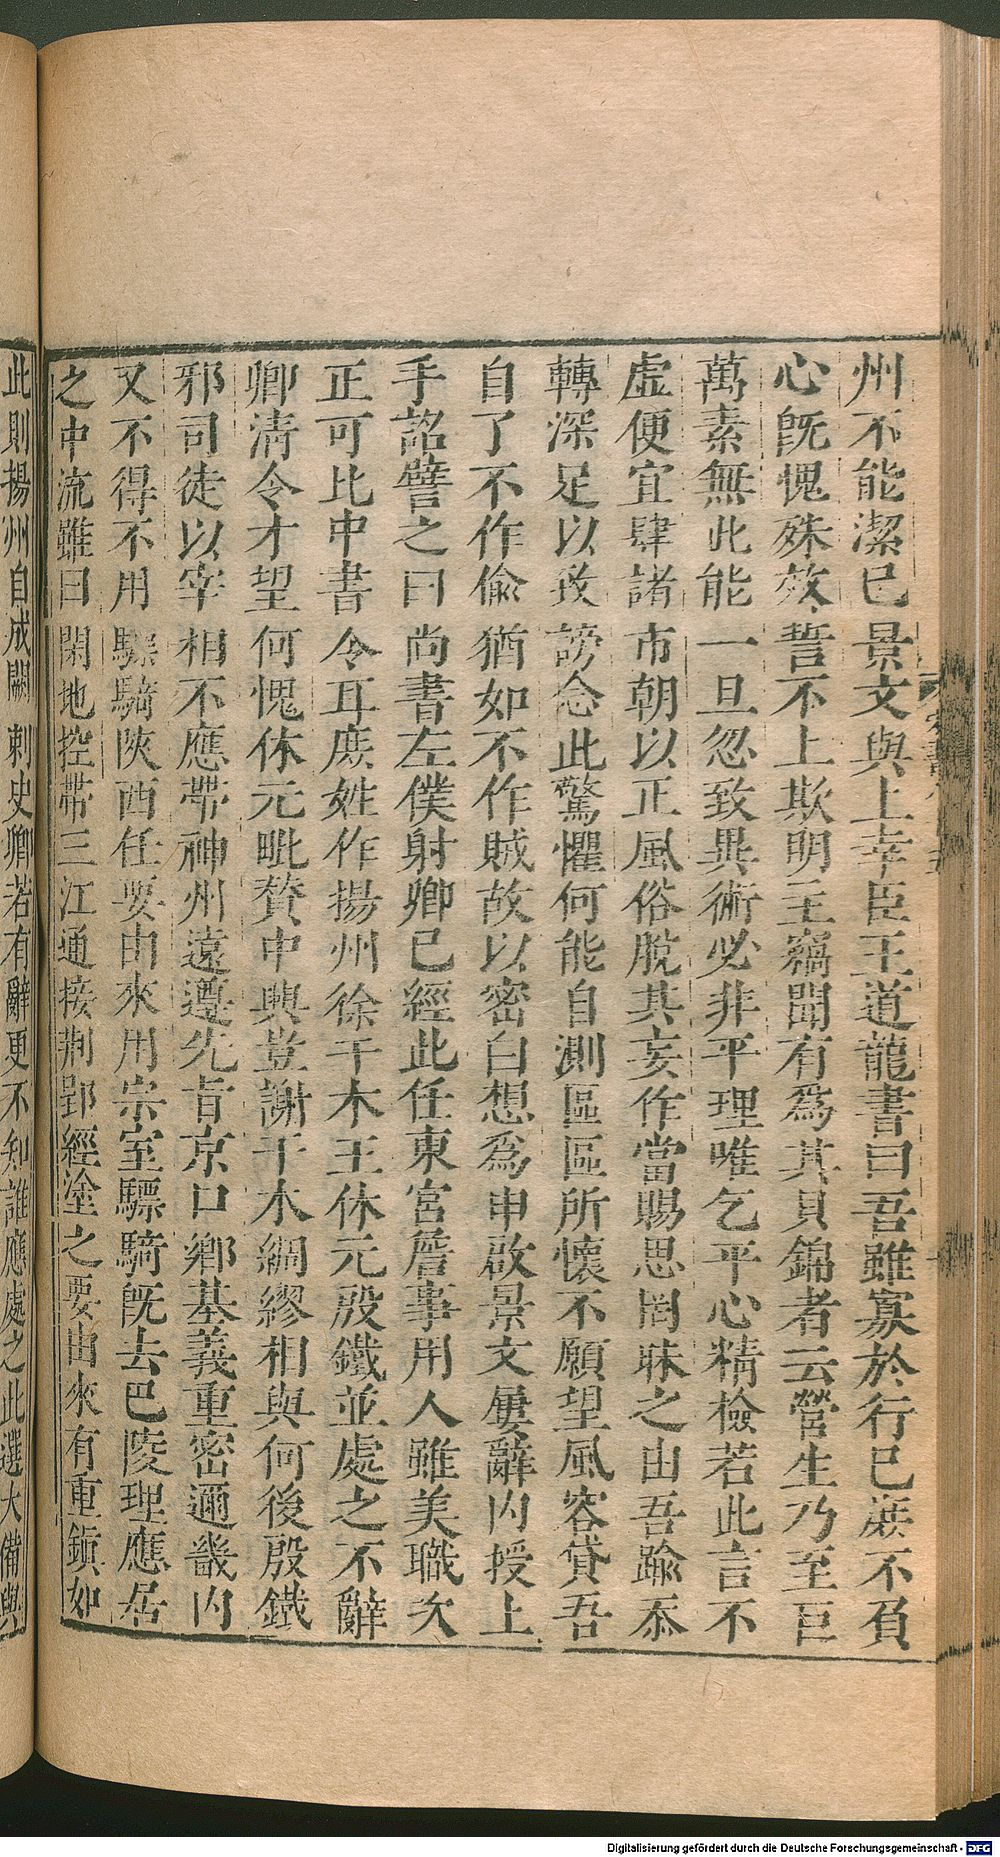 州不能潔已景文與上幸臣王道龍書曰吾雖寡於行已庶不負
心旣愧殊效誓不上欺明主竊聞有爲其貝錦者云營生乃至巨
萬素無此能一旦忽致異術必非平理唯乞平心精檢若此言不
虛便宜肆諸市朝以正風俗脫其妄作當賜思罔昧之由吾踰忝
轉深足以致謗念此驚懼何能自測區區所懷不願望風容貸吾
自了不作偷猶如不作賊故以密白想爲申啟景文屢辭內授上
手詔譬之曰尚書左僕射卿已經此任東宮詹事用人雖美職次
正可比中書令耳庶姓作揚州徐干木王休元殷鐵並處之不辭
卿淸令才望何愧休元毗贊中興豈謝干木綢繆相與何後殷鐵
邪司徒以宰相不應帶神州遠遵先旨京口鄉基義重密邇畿內
又不得不用驃騎陝西任要由來用宗室驃騎旣去巴陵理應居
之中流雖曰閑地控帶三江通接荆郢經塗之要由來有重鎭如
此則揚州自成闕刺史卿若有辭更不知誰應處之此選大備與
Digitalisierung gefördert durch die Deutsche Forschungsgemeinschaft - DFG